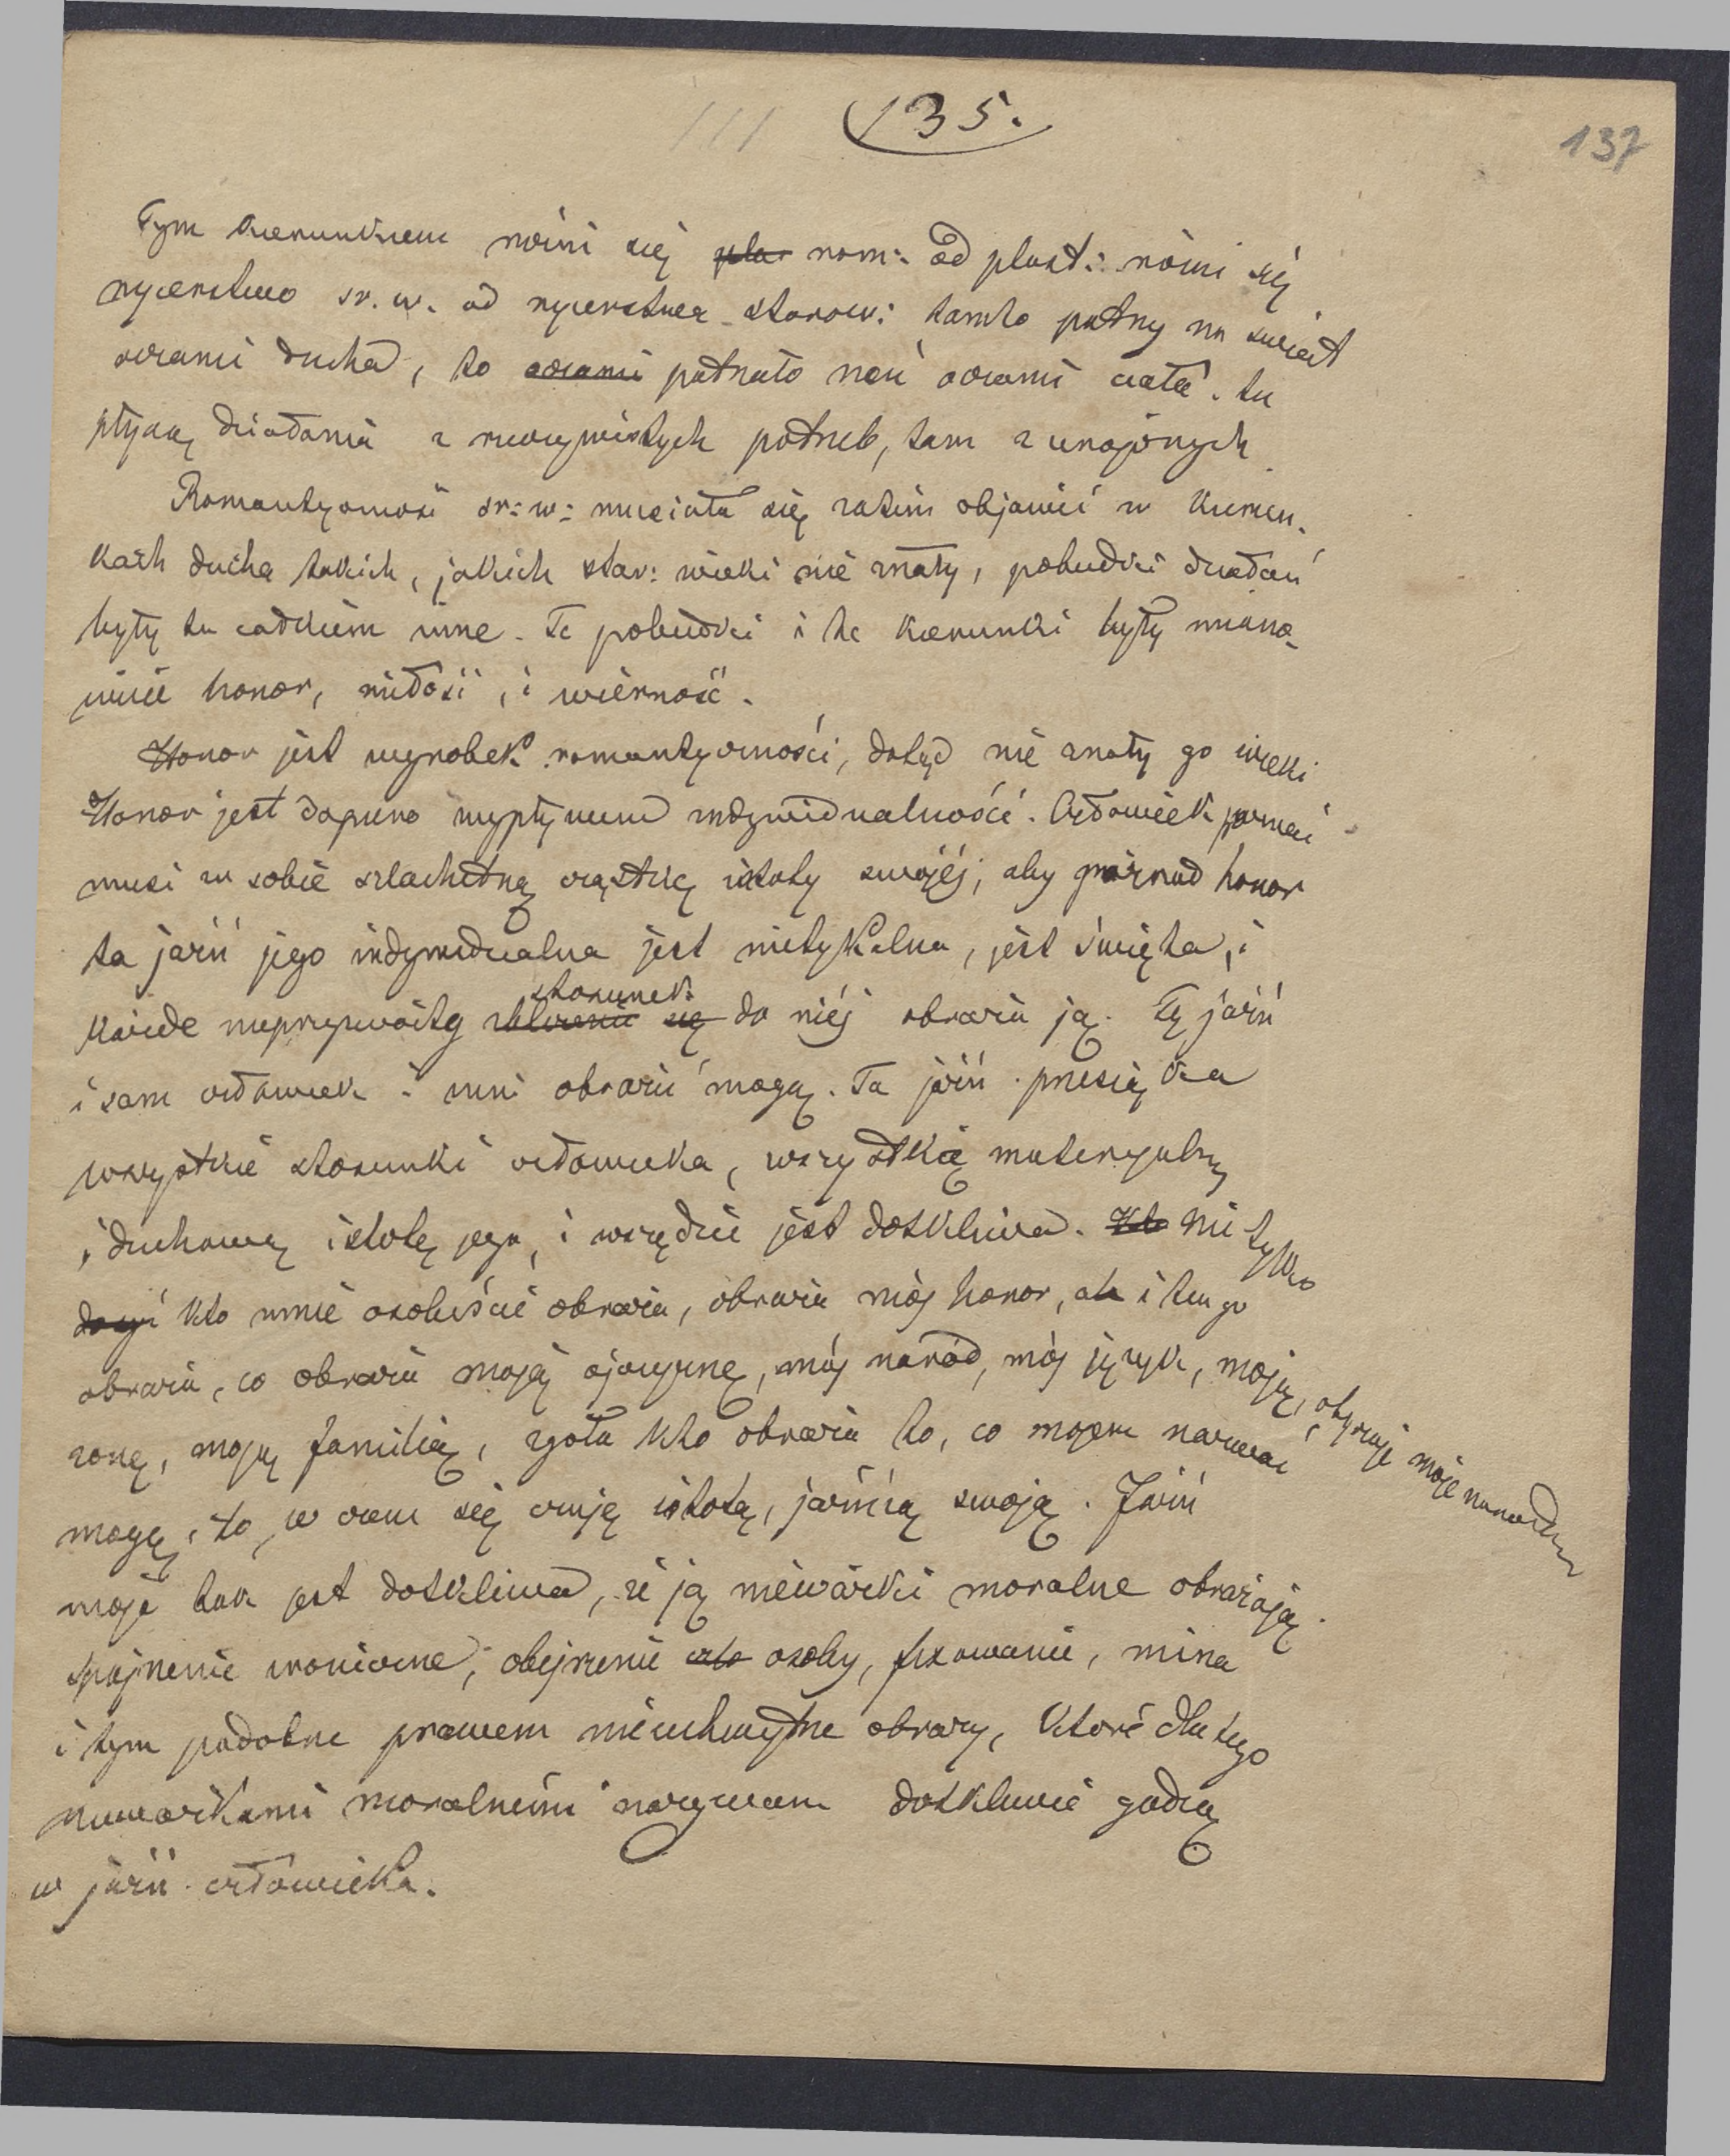 135.
137
Tym kierunkiem rożni się ~~pla~~ rom: od plast: rożni się
rycerstwo sr. w. od rycerstwa starow: tamto patrzy na swiat
oczami ducha, to ~~oczami~~ patrzało nań oczami ciała. tu
płyną działania z rzeczywistych potrzeb, tam z urojonych
Romantyczność sr: w: musiała się zatém objawić w kierun-
kach ducha takich, jakich star: wieki nié znały, pobudki działań
były tu całkiem inne. Te pobudki i te kierunki były miano-
wicie honor, miłość, i wiérność.
Honor jest wyrobek romantyczności, dotąd nié znały go wieki
Honor jest dopiero wypływem indywidualności. Człowiek poznać
musi w sobie szlachetną cząstkę istoty swojéj, aby poznał honor
ta jaźń jego indywidualna jest nietykalna, jest święta, i
każde nieprzyzwoity ~~zbliżenie się~~ stosunek do niéj obraża ją. Tę jaźń
i sam człowiek i inni obrazić mogą. Ta jaźń przesiąka
wszystkie stosunki człowieka, wszystką materyalną
i duchową istotę jego, i wszędzie jest dotkliwa. ~~Kto~~ Nie tylko
kto mnie osobiście obraża, obraża mój honor, ale i ten go
obraża, co obraża moją ojczyznę, mój naród, mój język, moję, obyczaje moje narodu
żonę, moję familią, zgoła kto obraża to, co mojem nazwać
mogę, to, w czem się czuję istotą, jaźnią swoją. Jaźń
moja tak jest dotkliwa, że ją niéważki moralne obrażają.
spojrzenie ironiczne, obejrzenie osoby, fixowanie, mina
i tym podobne prawem nieuchwytne obrazy, które dla tego
nieważkami moralnémi nazywam dotkliwie godzą
w jaźń człowieka.